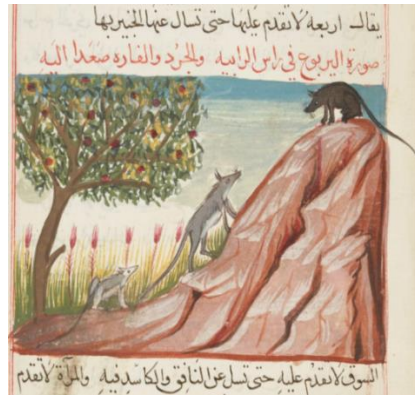 يقال اربعة لا تقدم عليها حتى تسال عنها الخبير بها
صورة اليربوع في راس الرابيه والجرد والفاره صعدا اليه
السوق لا تقدم عليه حتى تسل عن النافق والكاسد فيه والمرآة لا تقدم